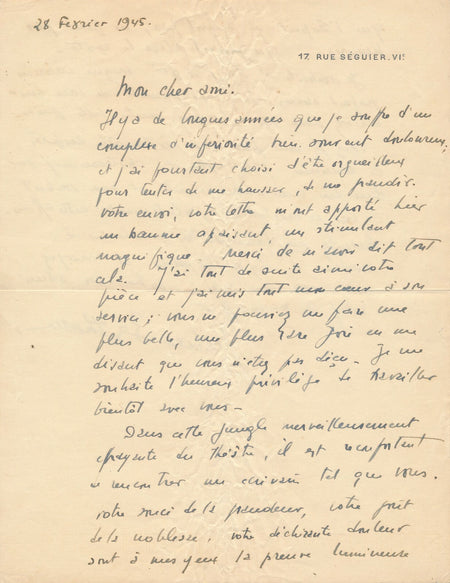 28 Février 1945.
17, RUE SÉGUIER. VIᵉ
Mon cher ami.
Il y a de longues années que je souffre d'un
complexe d'infériorité bien souvent douloureux,
et j'ai pourtant choisi d'être orgueilleux
pour tenter de me hausser, de me grandir.
Votre envoi, votre lettre m'ont apporté hier
un baume apaisant, un stimulant
magnifique. Merci de m'avoir dit tout
cela. J'ai tout de suite aimé votre
pièce et j'ai mis tout mon cœur à son
service ; vous ne pouviez me faire une
plus belle, une plus rare joie en me
disant que vous n'étiez pas déçu. Je me
souhaite l'heureux privilège de travailler
bientôt avec vous –
Dans cette jungle merveilleusement
effrayante du théâtre, il est réconfortant
de rencontrer un écrivain tel que vous.
votre souci de la grandeur, votre goût
de la noblesse, votre déchirante douleur
sont à mes yeux la preuve lumineuse